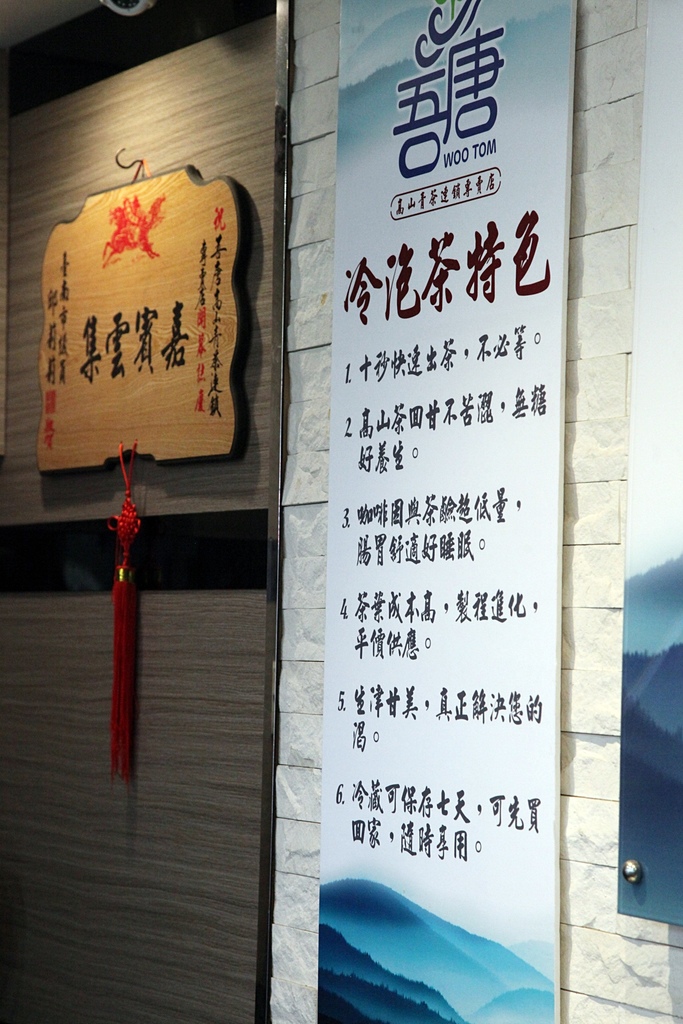 祝
吾唐高山青茶連鎖
專賣店開幕誌慶
嘉賓雲集
臺南市議員
邱莉莉
吾唐
WOO TOM
高山青茶連鎖專賣店
冷泡茶特色
1. 十秒快速出茶，不必等。
2. 高山茶回甘不苦澀，無糖
好養生。
3. 咖啡因與茶鹼超低量，
腸胃舒適好睡眠。
4. 茶葉成本高，製程進化，
平價供應。
5. 生津甘美，真正解決您的
渴。
6. 冷藏可保存七天，可先買
回家，隨時享用。